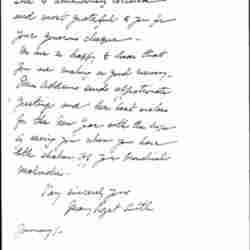 and most grateful to you for
your generous cheque —
We are so happy to know that
you are making a good recovery.
Miss Addams sends affectionate
greetings and her best wishes
for the New Year with the hope
of seeing you when you have
quite shaken off your bronchial
maladies.
Very sincerely yours
Mary Rozet Smith
January 1.